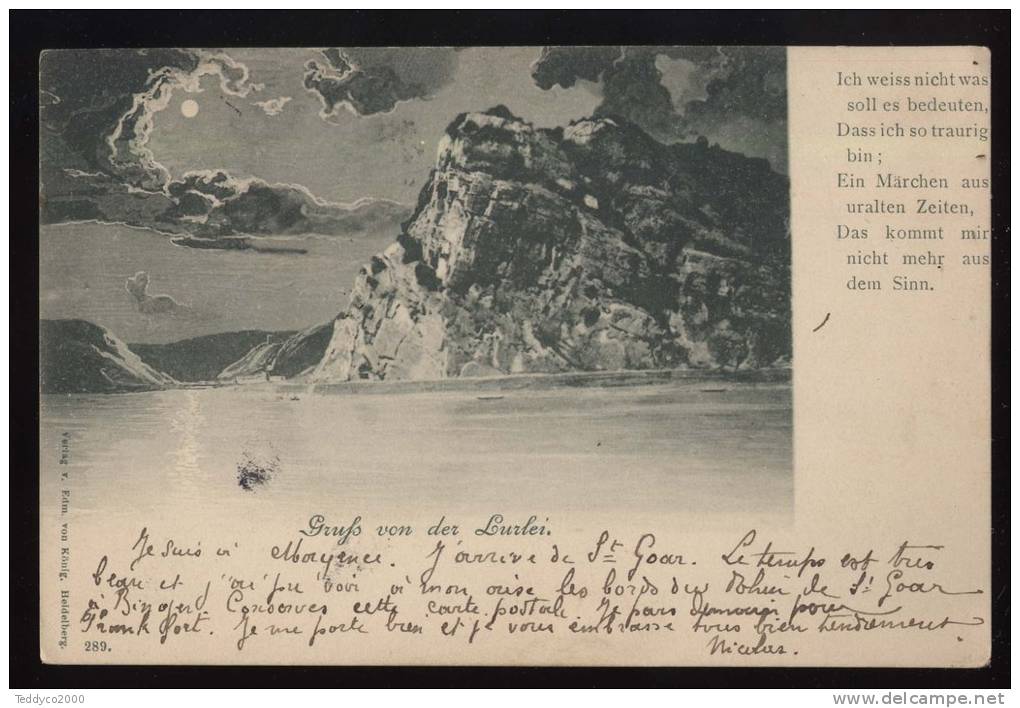 Ich weiss nicht was
soll es bedeuten,
Dass ich so traurig
bin;
Ein Märchen aus
uralten Zeiten,
Das kommt mir
nicht mehr aus
dem Sinn.
Verlag v. Edm. von König, Heidelberg.
Gruß von der Lurlei.
Je suis à Mayence. J'arrive de St Goar. Le temps est très
beau et j'ai pu voir à mon aise les bords du Rhin de St Goar
à Bingen. Conserves cette carte postale. Je pars demain pour
Frankfort. Je me porte bien et je vous embrasse tous bien tendrement
Nicolas.
289.
Teddyco2000
www.delcampe.net